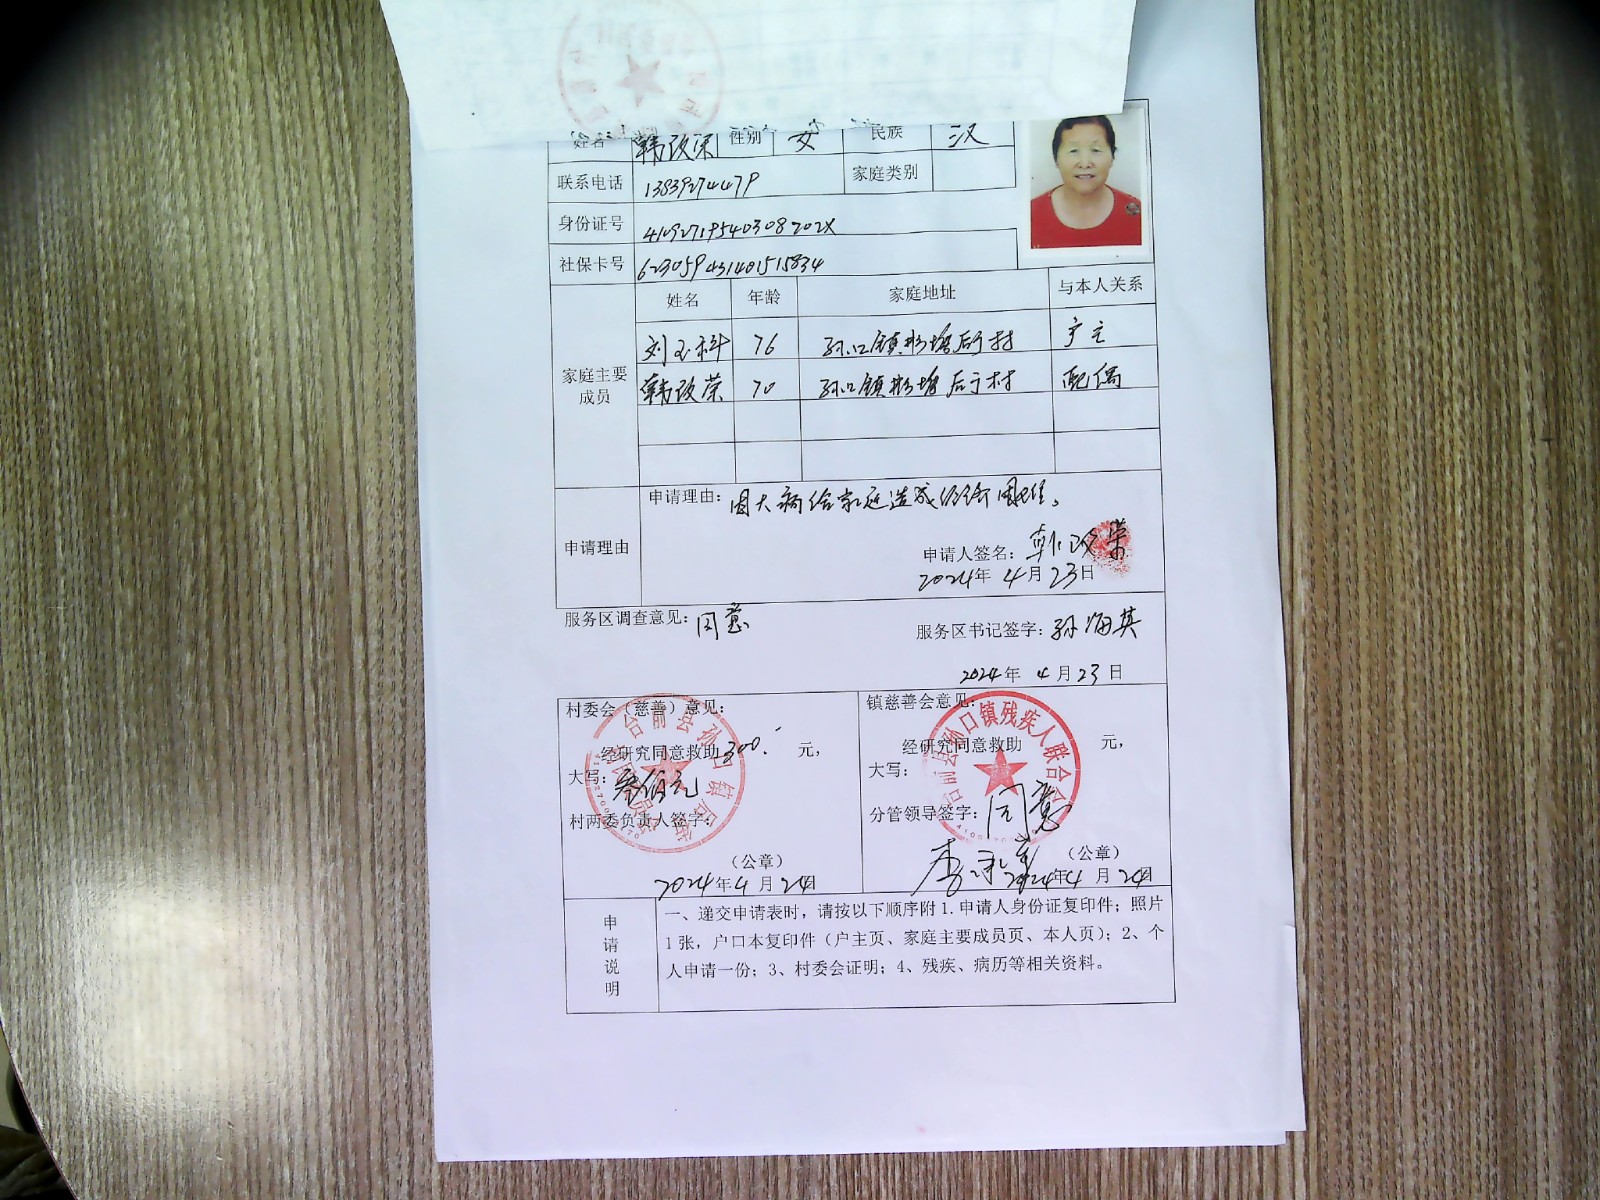 姓名 韩改荣 性别 女 民族 汉
联系电话 13839274479 家庭类别
身份证号 41092719540308202X
社保卡号 623059431401515834
家庭主要成员 姓名 年龄 家庭地址 与本人关系
刘玉科 76 孙口镇 后于村 户主
韩改荣 70 孙口镇 后于村 配偶
申请理由 申请理由：因大病给家庭造成经济困难。
申请人签名：韩改荣
2024年 4月23日
服务区调查意见：同意
服务区书记签字：孙海英
2024年 4月23日
村委会（慈善）意见：
经研究同意救助 300. 元，
大写：叁佰元
村两委负责人签字：
（公章）
2024年4月24日
镇慈善会意见：
经研究同意救助 元，
大写：
分管领导签字：同意
（公章）
2024年4月24日
台前县孙口镇残疾人联合会
申请说明
一、递交申请表时，请按以下顺序附1.申请人身份证复印件；照片
1张，户口本复印件（户主页、家庭主要成员页、本人页）；2、个
人申请一份；3、村委会证明；4、残疾、病历等相关资料。